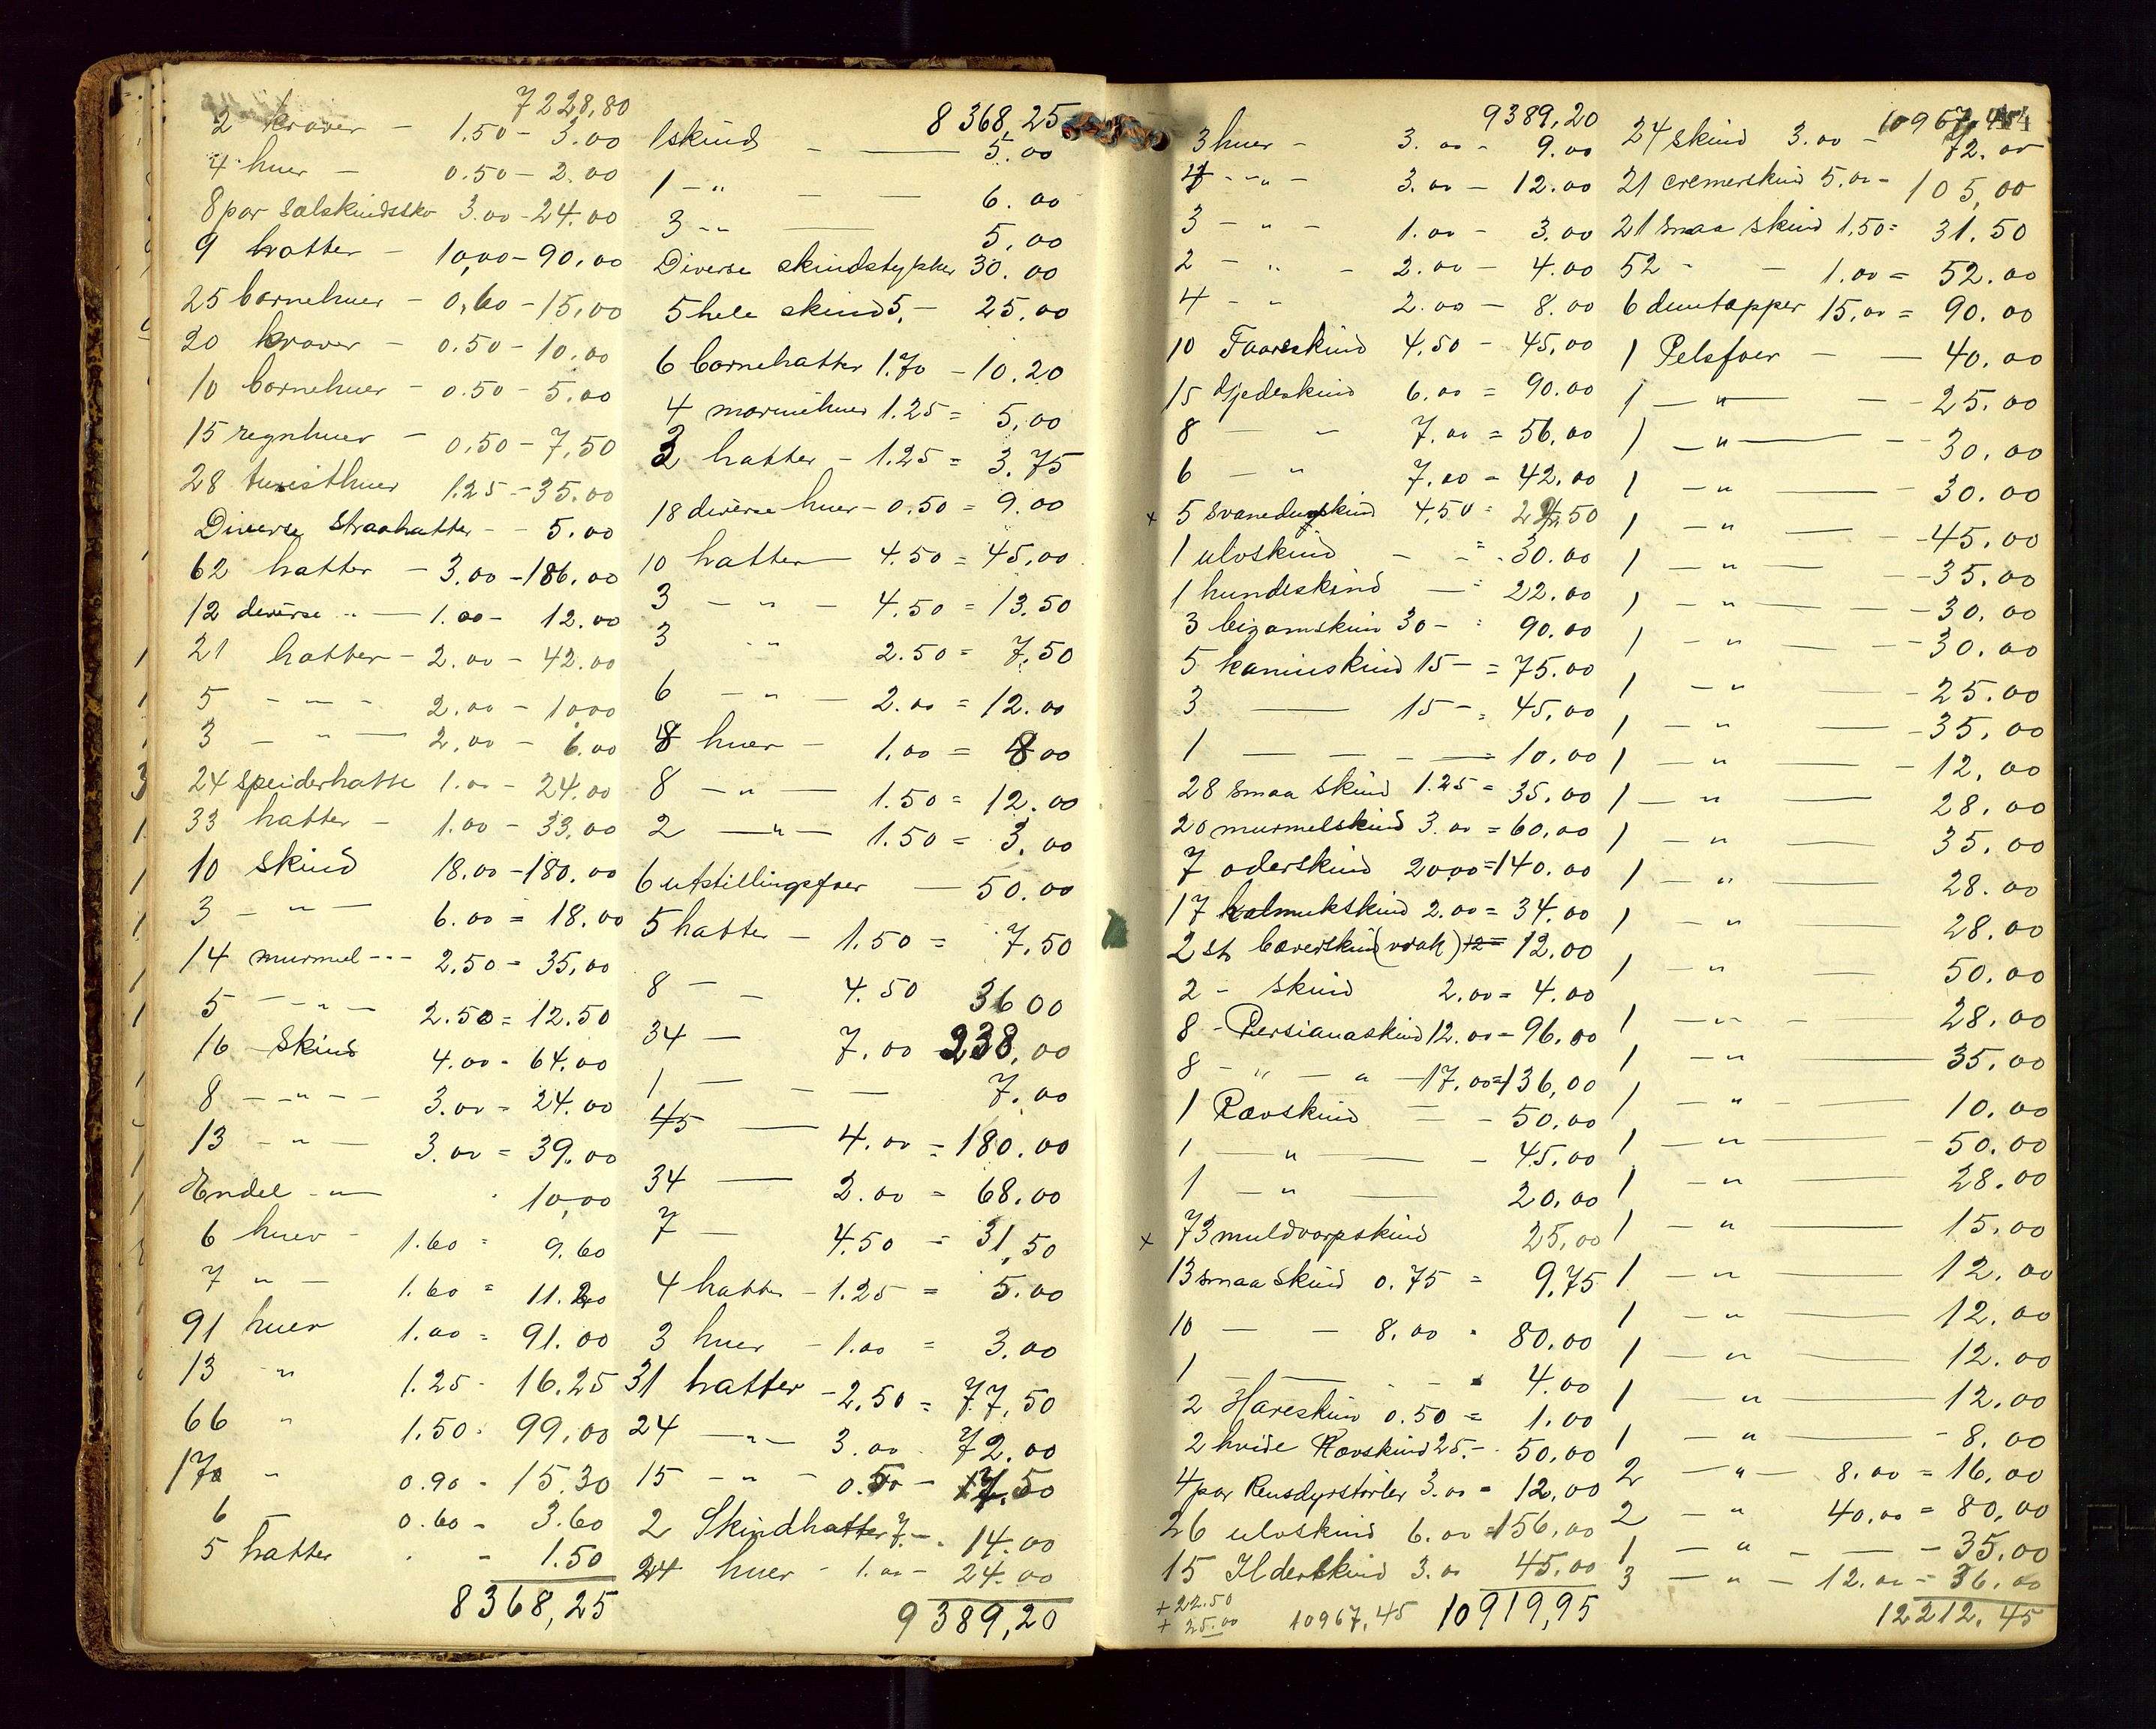 7228,80
2 kraver - 1.50 - 3.00
4 huer - 0.50 - 2.00
8 par Sælskindssko 3.00 - 24.00
9 hatter - 10,00 - 90.00
25 barnehuer - 0,60 - 15,00
20 kraver - 0.50 - 10.00
10 barnehuer - 0.50 - 5.00
15 regnhuer - 0,50 - 7,50
28 turisthuer 1.25 - 35.00
Diverse Straahatter - - 5.00
62 hatter - 3.00 - 186.00
12 diverse " - 1.00 - 12.00
21 hatter - 2.00 - 42.00
5 - " - 2.00 - 10,00
3 - " - 2,00 - 6.00
24 speiderhatte 1.00 - 24.00
33 hatter - 1.00 - 33.00
10 skind 18.00 - 180.00
3 - " - 6.00 = 18.00
14 murmel - - - 2.50 - 35,00
5 - " - 2.50 = 12.50
16 Skind 4.00 - 64.00
8 - " - - 3.00 - 24.00
13 - " - 3.00 = 39.00
Endel - " - 10,00
6 huer - 1.60 = 9.60
7 " - 1.60 = 11.20
91 huer 1.00 = 91.00
13 " 1.25 - 16.25
66 " 1.50 - 99.00
17 " 0.90 - 15.30
6 - 0.60 - 3.60
5 hatter - 1.50
8368,25
8368,25
1 skind - 5.00
1 - " - - 6.00
3 - " - 5.00
Diverse skindstykker 30.00
5 hele skind 5,- 25.00
6 barnehatter 1.70 - 10.20
4 marinehuer 1.25 = 5,00
3 hatter - 1.25 = 3.75
18 diverse huer - 0.50 = 9.00
10 hatter - 4.50 = 45,00
3 - " - 4.50 = 13.50
3 " 2.50 = 7,50
6 - " - 2.00 = 12.00
8 huer - 1.00 = 8 00
8 - " - 1.50 = 12.00
2 - " - 1.50 = 3.00
6 utstillingsfoer - 50.00
5 hatter - 1.50 = 7,50
8 - - 4.50 36 00
34 - 7.00 238,00
1 - - - 7.00
45 - 4.00 = 180.00
34 - 2.00 = 68.00
7 - 4.50 = 31,50
4 hatter - 1.25 = 5.00
3 huer - 1.00 = 3.00
31 hatter - 2,50 = 77,50
24 - " - 3.00 - 72.00
15 - " - 0.50 - 7,50
2 Skindhatter 7.- 14.00
24 huer - 1.00 - 24.00
9389,20
9389,20
3 huer - 3.00 - 9.00
4 - " - 3.00 - 12.00
3 - " - 1.00 - 3.00
2 - " - 2.00 - 4.00
4 - " 2.00 - 8.00
10 Faareskind 4,50 - 45,00
15 Gjedeskind 6.00 = 90.00
8 - " 7.00 = 56.00
6 - " 7.00 - 42.00
x 5 Svanedunskind 4,50 = 22,50
1 ulvskind - - = 30.00
1 hundeskind - = 22.00
3 bizamskin 30 - = 90.00
5 kaninskind 15 - = 75.00
3 - 15 - = 45,00
1 - - - = 10.00
28 smaa skind 1.25 = 35,00
20 murmelskind 3.00 = 60,00
7 oderskind 20.00 = 140.00
17 kalmukskind 2.00 = 34.00
2 st bæverskind (vrak) 12 = 12,00
2 - skind 2,00 = 4.00
8 - Persianaskind 12.00 - 96.00
8 - " - " - 17.00 = 136,00
1 Rævskind - - 50,00
1 - " - - 45.00
1 - " - 20.00
x 73 muldvarpskind 25,00
13 smaa skind 0.75 = 9,75
10 - - 8.00 - 80.00
1 - - - 4.00
2 Hareskin 0.50 = 1.00
2 hvide Rævskind 25.- 50,00
4 par Rensdyrstøvler 3.00 = 12,00
26 ulvskind 6.00 = 156,00
15 Ilderskind 3.00 45,00
+ 22.50
+ 25.00 10967,45 10919,95
10967,45
24 skind 3.00 - 72.00
21 cremerskind 5,00 - 105,00
21 smaa skind 1,50 = 31.50
52 - - 1.00 = 52.00
6 duntapper 15.00 = 90.00
1 Pelsfoer - - 40.00
1 - " - - 25.00
1 - " - - 30.00
1 - " - 30.00
1 - " - - 45.00
1 - " - - 35.00
1 - " - - 30.00
1 - " - 30.00
1 - " - 25.00
1 - " - 35.00
1 - " - 12,00
1 - " - 28.00
1 - " - 35.00
1 - " - 28.00
1 - " - 28.00
1 - " - 50.00
1 - " - 28.00
1 - " - 35.00
1 - " - 10.00
1 - " - 50.00
1 - " - 28.00
1 - " - 15.00
1 - " - 12.00
1 - " - 12.00
1 - " - 12.00
1 - " - 12.00
1 - " - 8.00
2 - " - 8.00 = 16,00
2 - " 40.00 = 80,00
1 - " - - 35.00
3 - " - 12.00 = 36.00
12212.45